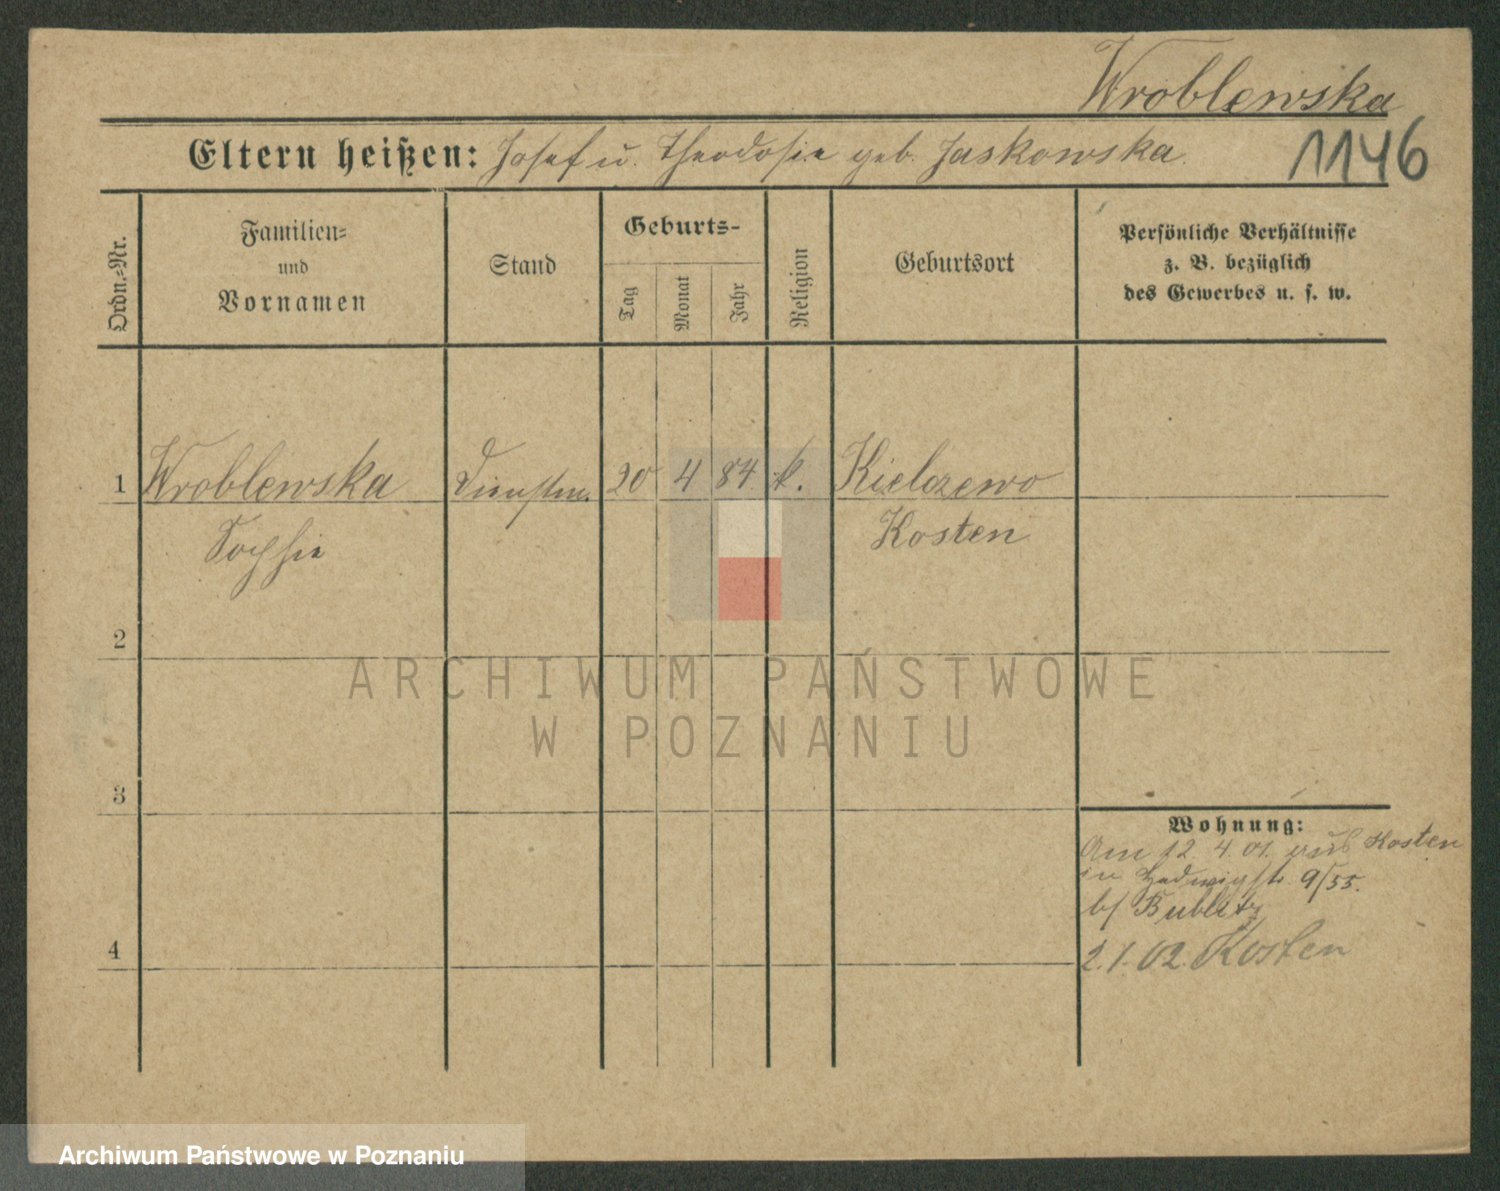 Wroblewska
Eltern heißen: Josef u. Theodosie geb. Jaskowska.
1146
Ordn.-Nr.
Familien-
und
Vornamen
Stand
Geburts-
Tag
Monat
Jahr
Religion
Geburtsort
Persönliche Verhältnisse
z. B. bezüglich
des Gewerbes u. s. w.
1 Wroblewska Dienstm. 20 4 84 k. Kielczewo
Sophie Kosten
2
ARCHIWUM PAŃSTWOWE
W POZNANIU
3
Wohnung:
Am 12 4. 01. aus Kosten
in Hedwigstr. 9/55.
b/ Bublitz
4
2.1.02. Kosten
Archiwum Państwowe w Poznaniu